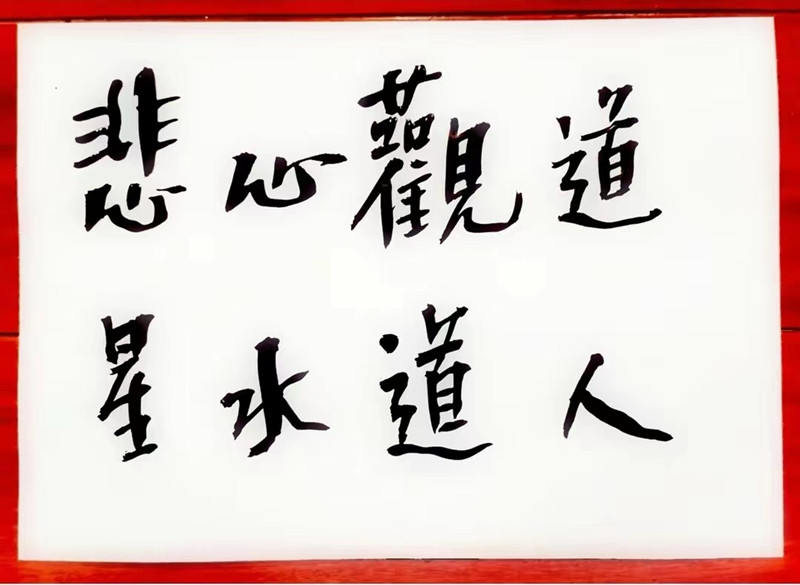 悲心觀道
星水道人